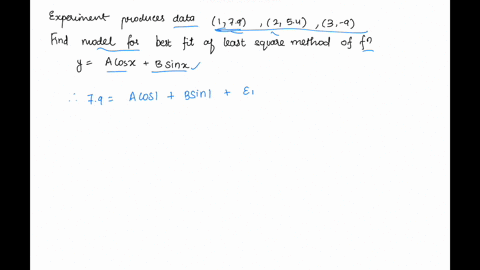 Experiment produces data (1,7.9) , (2,5.4) , (3,-9)
Find model for best fit of least square method of fⁿ
y = Acosx + Bsinx
∴ 7.9 = Acos1 + Bsin1 + ε₁